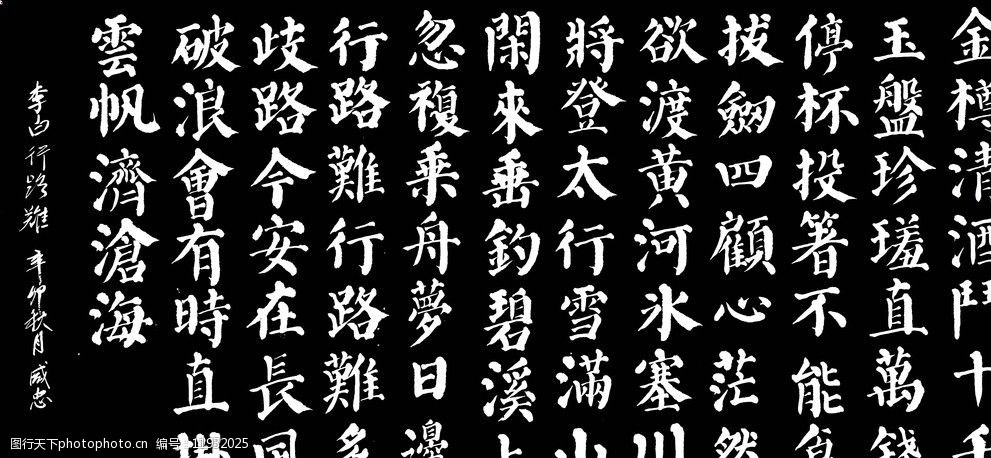 金樽清酒鬥十千
玉盤珍瑳直萬錢
停杯投箸不能食
拔劒四顧心茫然
欲渡黄河氷塞川
將登太行雪滿山
閑來垂釣碧溪上
忽複乘舟夢日邊
行路難行路難多
歧路今安在長風
破浪會有時直掛
雲帆濟滄海
李白行路難 辛卯秋月
图行天下photophoto.cn 编号: